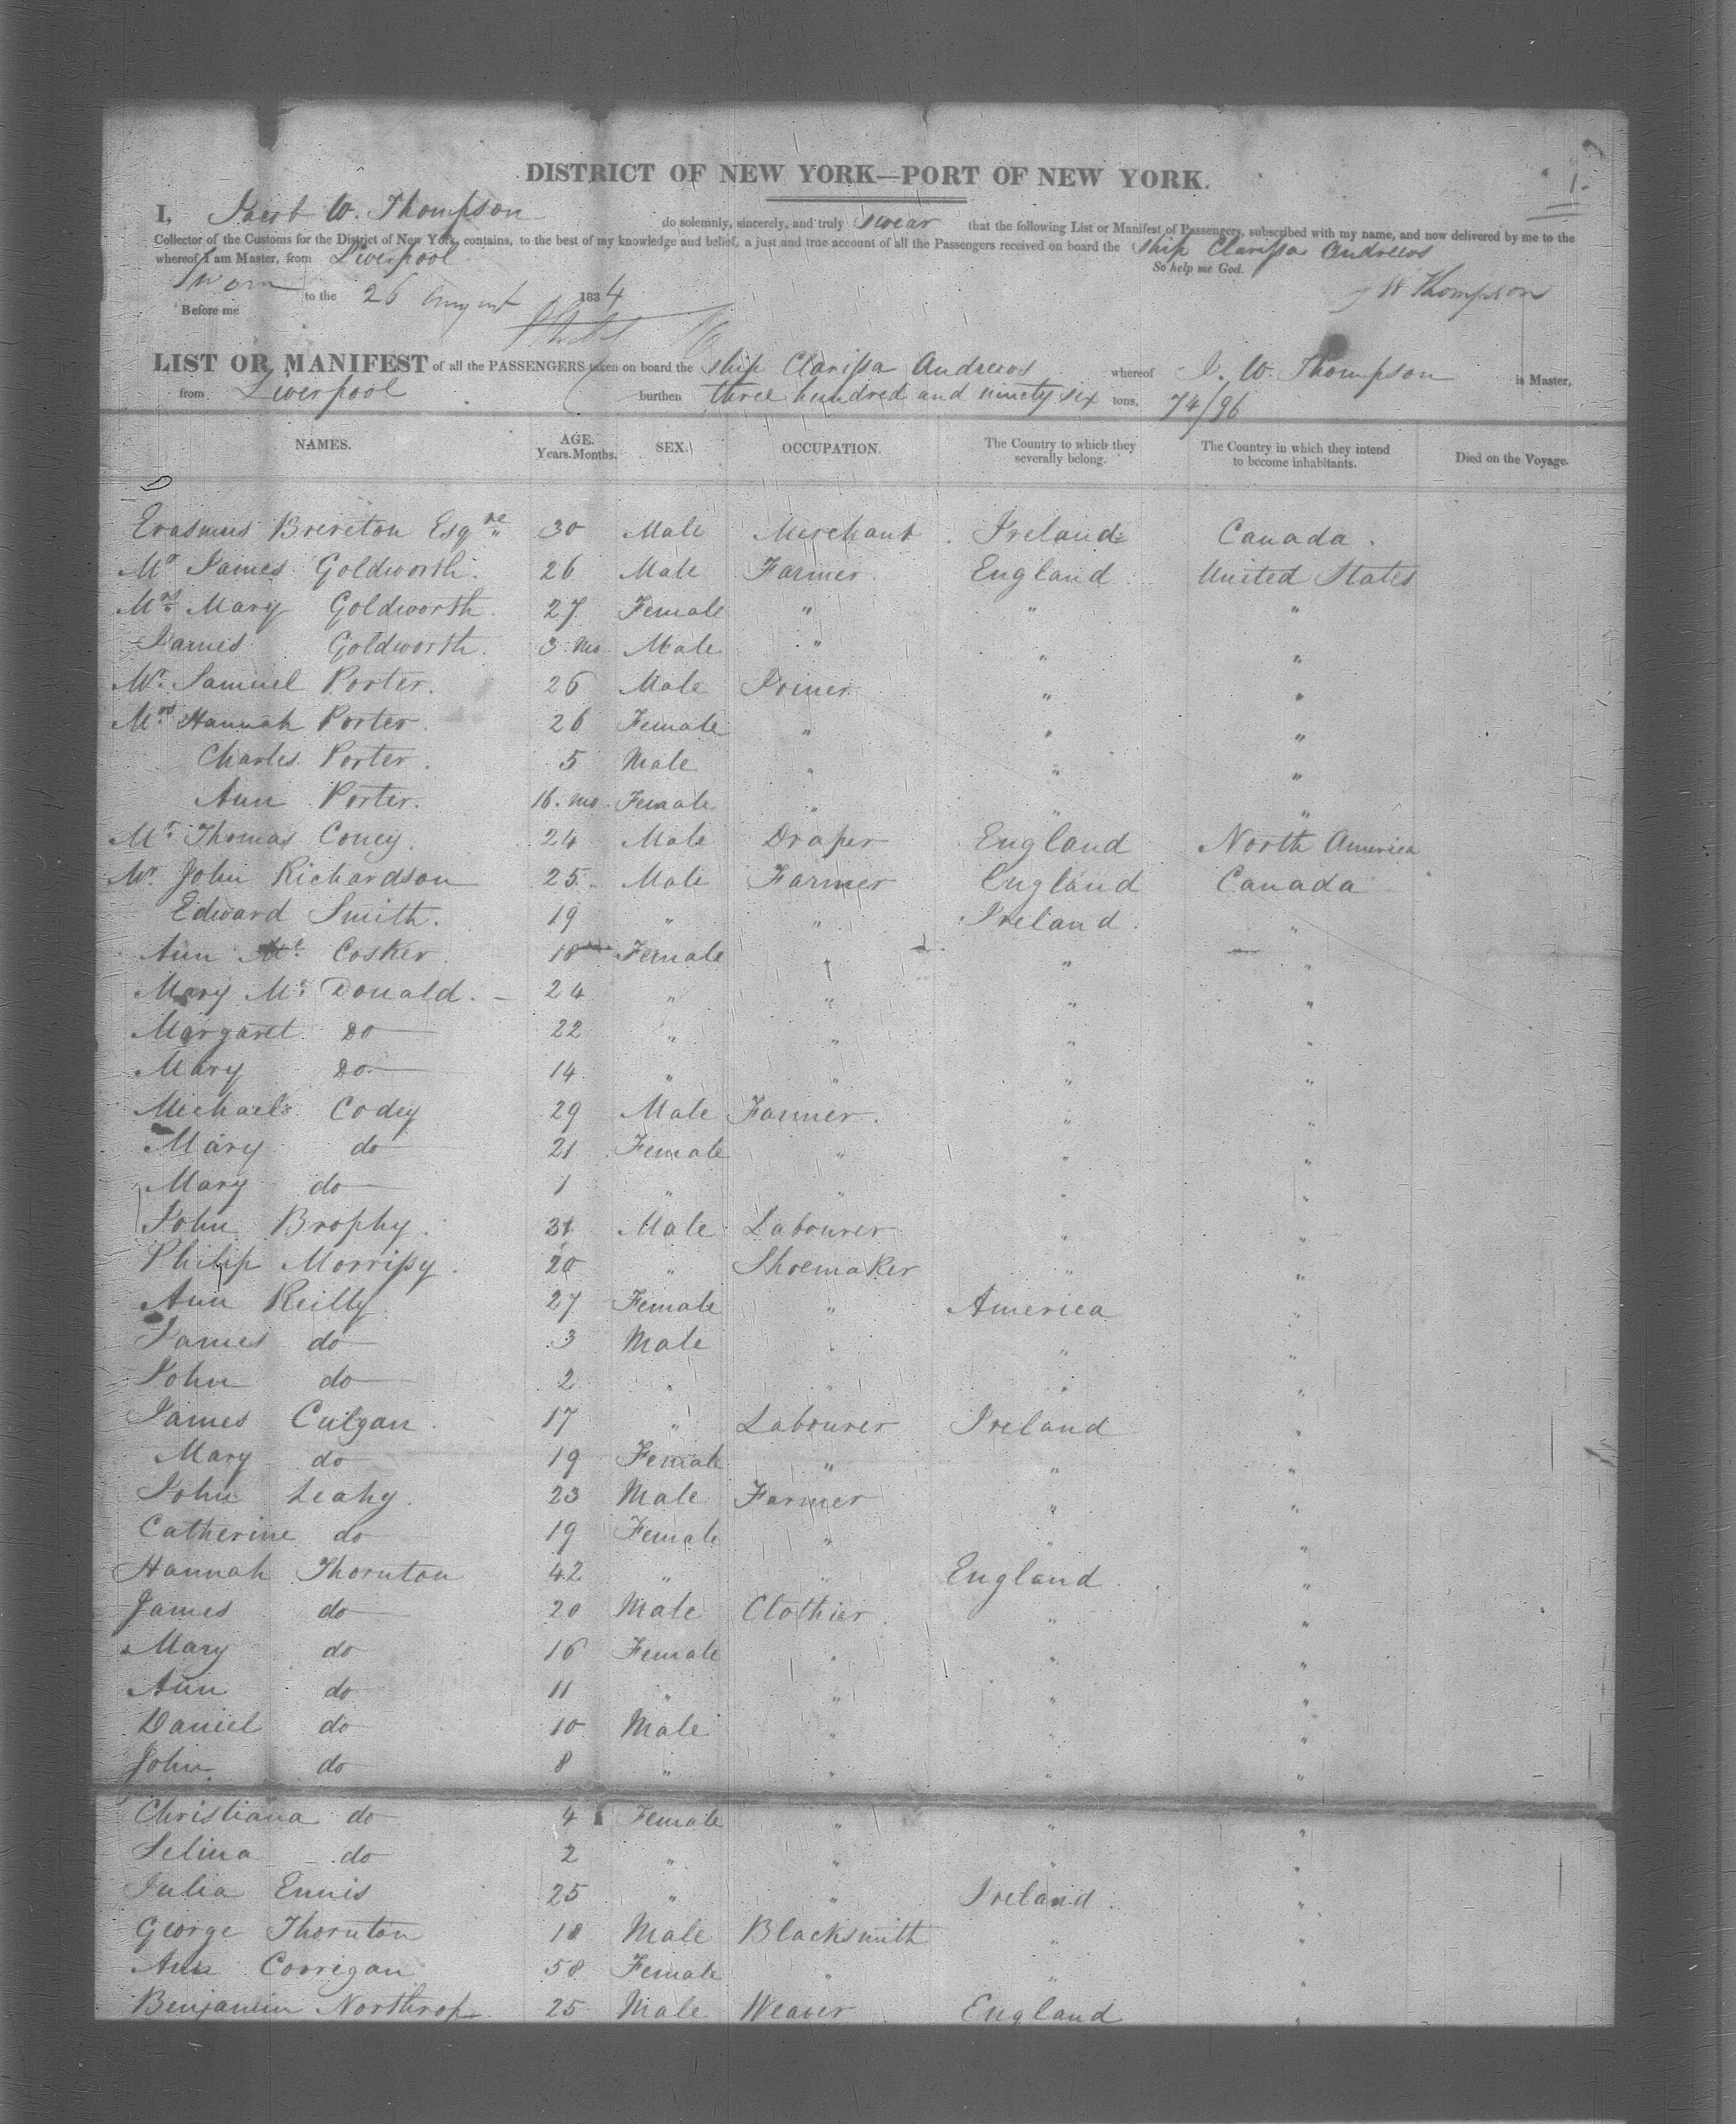 1.
DISTRICT OF NEW YORK—PORT OF NEW YORK.
I, Jacob W. Thompson do solemnly, sincerely, and truly swear that the following List or Manifest of Passengers, subscribed with my name, and now delivered by me to the
Collector of the Customs for the District of New York, contains, to the best of my knowledge and belief, a just and true account of all the Passengers received on board the Ship Clarissa Andrews
whereof I am Master, from Liverpool So help me God.
Sworn to the 26 August 1834 J W Thompson
Before me
LIST OR MANIFEST of all the PASSENGERS taken on board the Ship Clarissa Andrews whereof J. W. Thompson is Master,
from Liverpool burthen three hundred and ninety six tons, 74/96
NAMES. AGE. Years. Months. SEX. OCCUPATION. The Country to which they severally belong. The Country in which they intend to become inhabitants. Died on the Voyage.
Erasmus Brereton Esqre 30 Male Merchant Ireland Canada.
Mr James Goldworth. 26 Male Farmer England United States
Mrs Mary Goldworth. 27 Female " " "
James Goldworth. 3 mo Male " " "
Mr Samuel Porter. 26 Male Joiner " "
Mrs Hannah Porter. 26 Female " " "
Charles Porter. 5 Male " " "
Ann Porter. 16. mo Female " " "
Mr Thomas Coney. 24 Male Draper England North America
Mr John Richardson 25 Male Farmer England Canada
Edward Smith. 19 " " Ireland. "
Ann Mc Cosker. 18 Female " " "
Mary Mc Donald. 24 " " " "
Margaret Do 22 " " " "
Mary Do 14 " " " "
Michael Codey 29 Male Farmer. " "
Mary do 21 Female " " "
Mary do 1 " " " "
John Brophy. 31 Male Labourer " "
Philip Morrissy. 20 " Shoemaker " "
Ann Reilly 27 Female " America "
James do 3 Male " " "
John do 2 " " " "
James Culgan. 17 " Labourer Ireland "
Mary do 19 Female " " "
John Leahy. 23 Male Farmer " "
Catherine do 19 Female " " "
Hannah Thornton 42 " " England. "
James do 20 Male Clothier. " "
Mary do 16 Female " " "
Ann do 11 " " " "
Daniel do 10 Male " " "
John do 8 " " " "
Christiana do 4 Female " " "
Selina do 2 " " " "
Julia Ennis 25 " " Ireland. "
George Thornton 18 Male Blacksmith " "
Ann Corrigan 58 Female " " "
Benjamin Northrop 25 Male Weaver England "